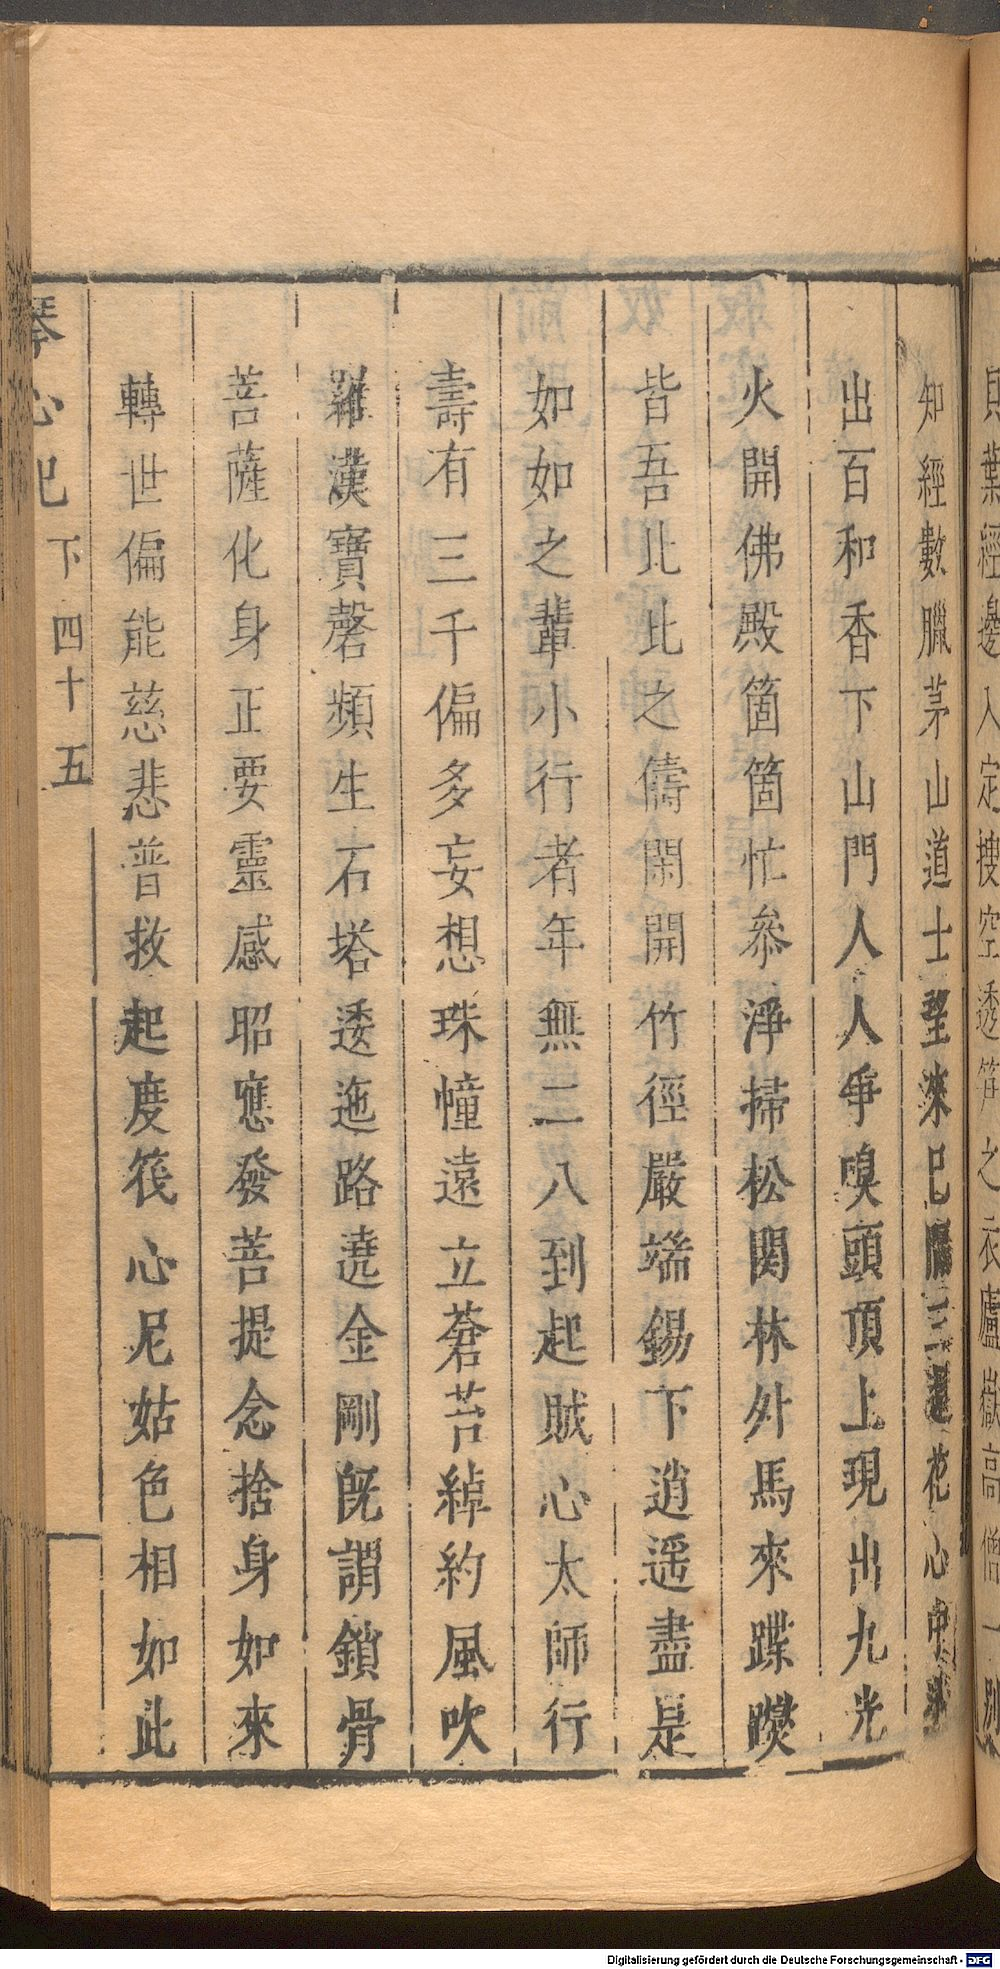 貝葉經邊入定搜空透笇之衣廬嶽高僧一
知經數臘茅山道士望來已三花心中
出百和香下山門人人爭嗅頭頂上現出九光
火開佛殿箇箇忙叅淨掃松関林外馬來蹀躞
皆吾此比之儔閑開竹徑嚴端錫下逍遥盡是
如如之輩小行者年無二八到起賊心太師行
壽有三千偏多妄想珠幢遠立蒼苔綽約風吹
羅漢寶磬頻生石塔逶迤路遶金剛旣謂鎖骨
菩薩化身正要靈感昭應發菩提念捨身如來
轉世偏能慈悲普救起度筏心尼姑色相如此
琴心記 下 四十五
Digitalisierung gefördert durch die Deutsche Forschungsgemeinschaft - DFG